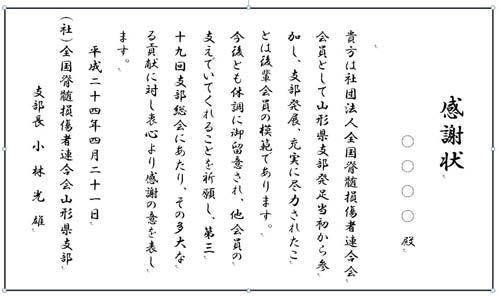 感謝状
〇〇〇〇 殿
貴方は社団法人全国脊髄損傷者連合会
会員として山形県支部発足当初から参
加し、支部発展、充実に尽力されたこ
とは後輩会員の模範であります。
今後とも体調に御留意され、他会員の
支えでいてくれることを祈願し、第三
十九回支部総会にあたり、その多大な
る貢献に対し衷心より感謝の意を表し
ます。
平成二十四年四月二十一日
(社)全国脊髄損傷者連合会山形県支部
支部長 小林光雄